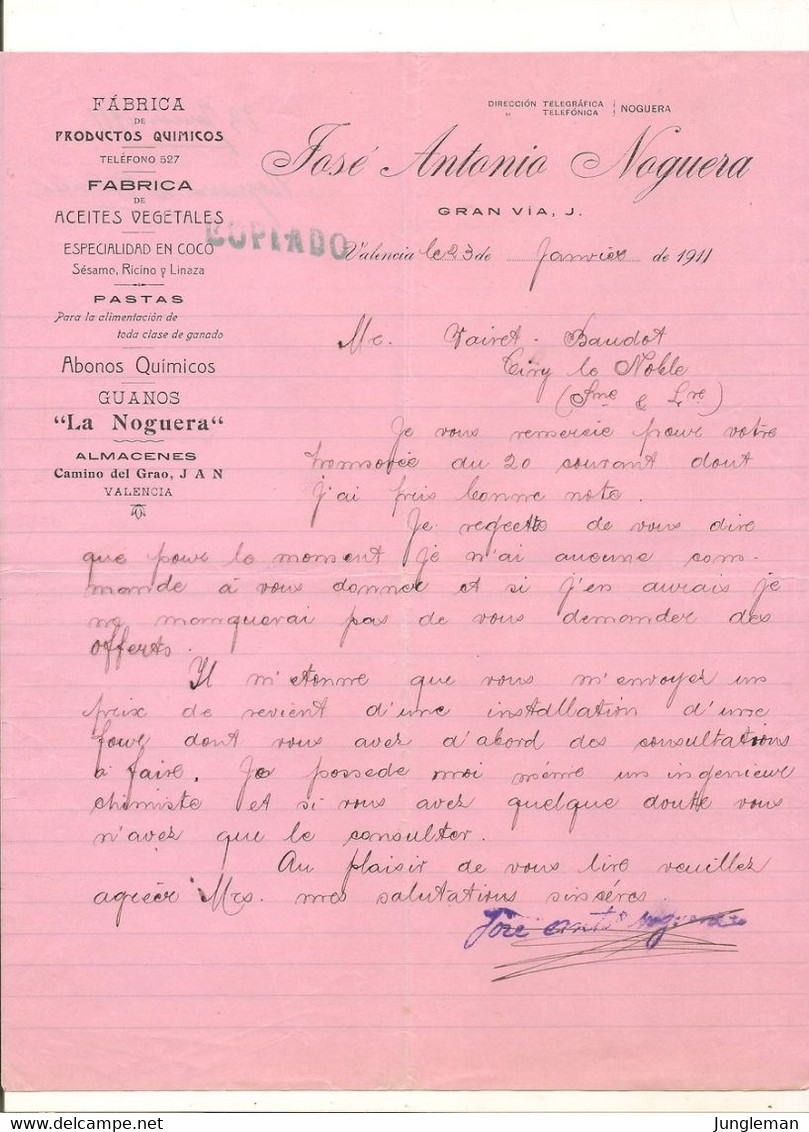 FÁBRICA
DE
PRODUCTOS QUIMICOS
TELÉFONO 527
FABRICA
DE
ACEITES VEGETALES
ESPECIALIDAD EN COCO
Sésamo, Ricino y Linaza
PASTAS
Para la alimentación de
toda clase de ganado
Abonos Químicos
GUANOS
"La Noguera"
ALMACENES
Camino del Grao, J A N
VALENCIA
DIRECCIÓN TELEGRÁFICA
" TELEFÓNICA
NOGUERA
José Antonio Noguera
GRAN VÍA, J.
COPIADO
Valencia le 23 de Janvier de 1911
Mr. Vairet-Baudot
Ciry le Noble
(Sne & Lre)
Je vous remercie pour votre
du 20 courant dont
j'ai pris bonne note.
Je regrette de vous dire
que pour le moment je n'ai aucune com-
mande à vous donner et si j'en aurais je
ne manquerai pas de vous demander des
offerts.
Il m'etonne que vous m'envoyez un
prix de revient d'une installation d'une
four dont vous avez d'abord des consultations
à faire. Je possede moi même un ingenieur
chimiste et si vous avez quelque doutte vous
n'avez que le consulter.
Au plaisir de vous lire veuillez
agreér Mrs. mes salutations sincéres.
José Antº Noguera
delcampe.net
Jungleman